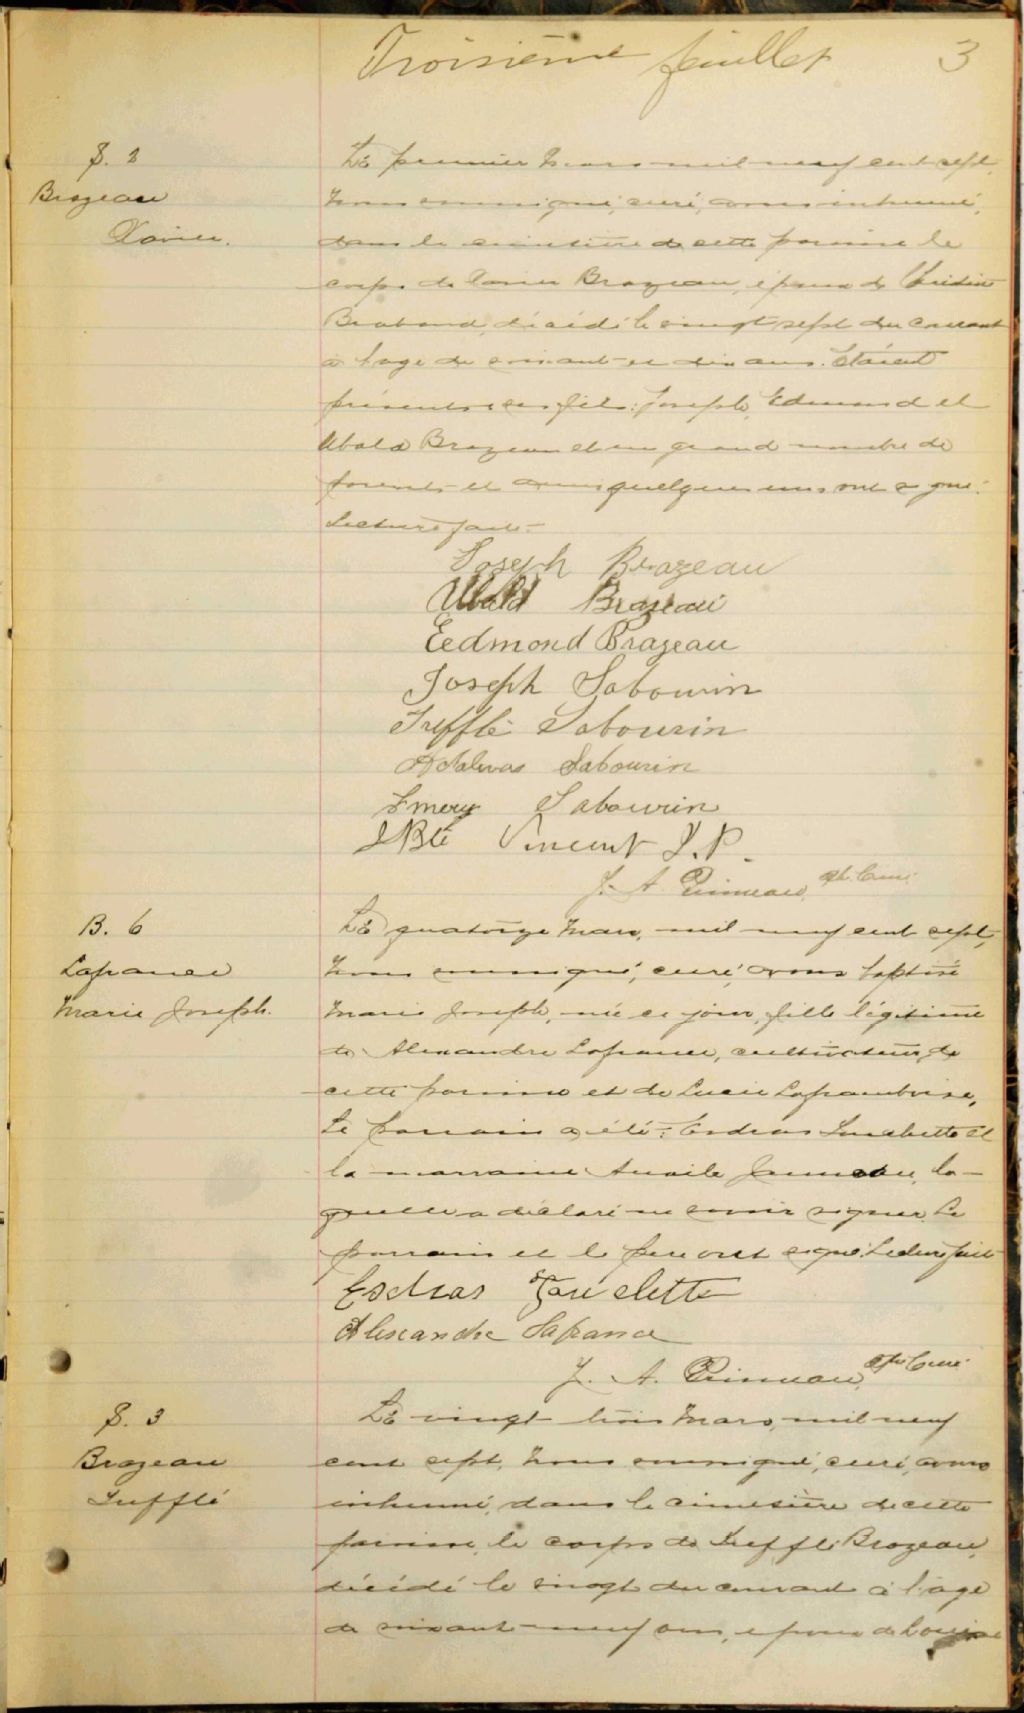 Troisième feuillet 3
S. 2
Brazeau
Xavier.
Le premier Mars mil neuf cent sept,
Nous soussigné, curé, avons inhumé,
dans le cimetière de cette paroisse le
corps de Xavier Brazeau, époux de
Braband, décédé le vingt sept du courant
a l'age de soixant et dix ans. Etaient
présents ses fils: Joseph, Edmond et
Ubald Brazeau et un grand nombre de
parents et amis quelques uns ont signé.
Lecture faite.
Joseph Brazeau
Ubald Brazeau
Eedmond Brazeau
Joseph Sabourin
Treffle Sabourin
Sabourin
Emery Sabourin
J Bte Vincent J.P.
J. A. Primeau, Ptr. Curé.
B. 6
Lafrance
Marie Joseph.
Le quatorze Mars, mil neuf cent sept,
Nous soussigné, curé, avons baptisé
Marie Joseph, née ce jour, fille légitime
de Alexandre Lafrance, cultivateur, de
cette paroisse et de Lucie Laframboise,
Le parrain a été: Esdras et
la marraine la-
quelle a déclaré ne savoir signer. Le
parrain et le pere ont signé. Lecture faite
Esdras
Alexandre Lafrance
J. A. Primeau, Ptr Curé.
S. 3
Brazeau
Trefflé
Le vingt trois Mars, mil neuf
cent sept, Nous soussigné, curé, avons
inhumé, dans le cimetière de cette
paroisse, le corps de Trefflé Brazeau,
décédé le vingt du courant à l'age
de soixant-neuf ans, époux de Louise